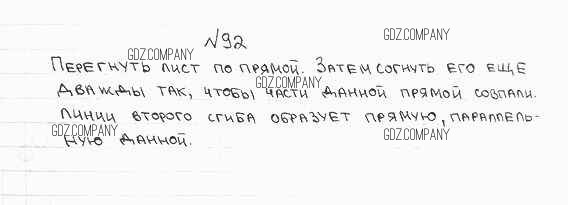 №92
GDZ.COMPANY
GDZ.COMPANY
Перегнуть лист по прямой. Затем согнуть его еще
GDZ.COMPANY
дважды так, чтобы части данной прямой совпали.
Линии второго сгиба образует прямую, параллель-
GDZ.COMPANY
GDZ.COMPANY
ную данной.